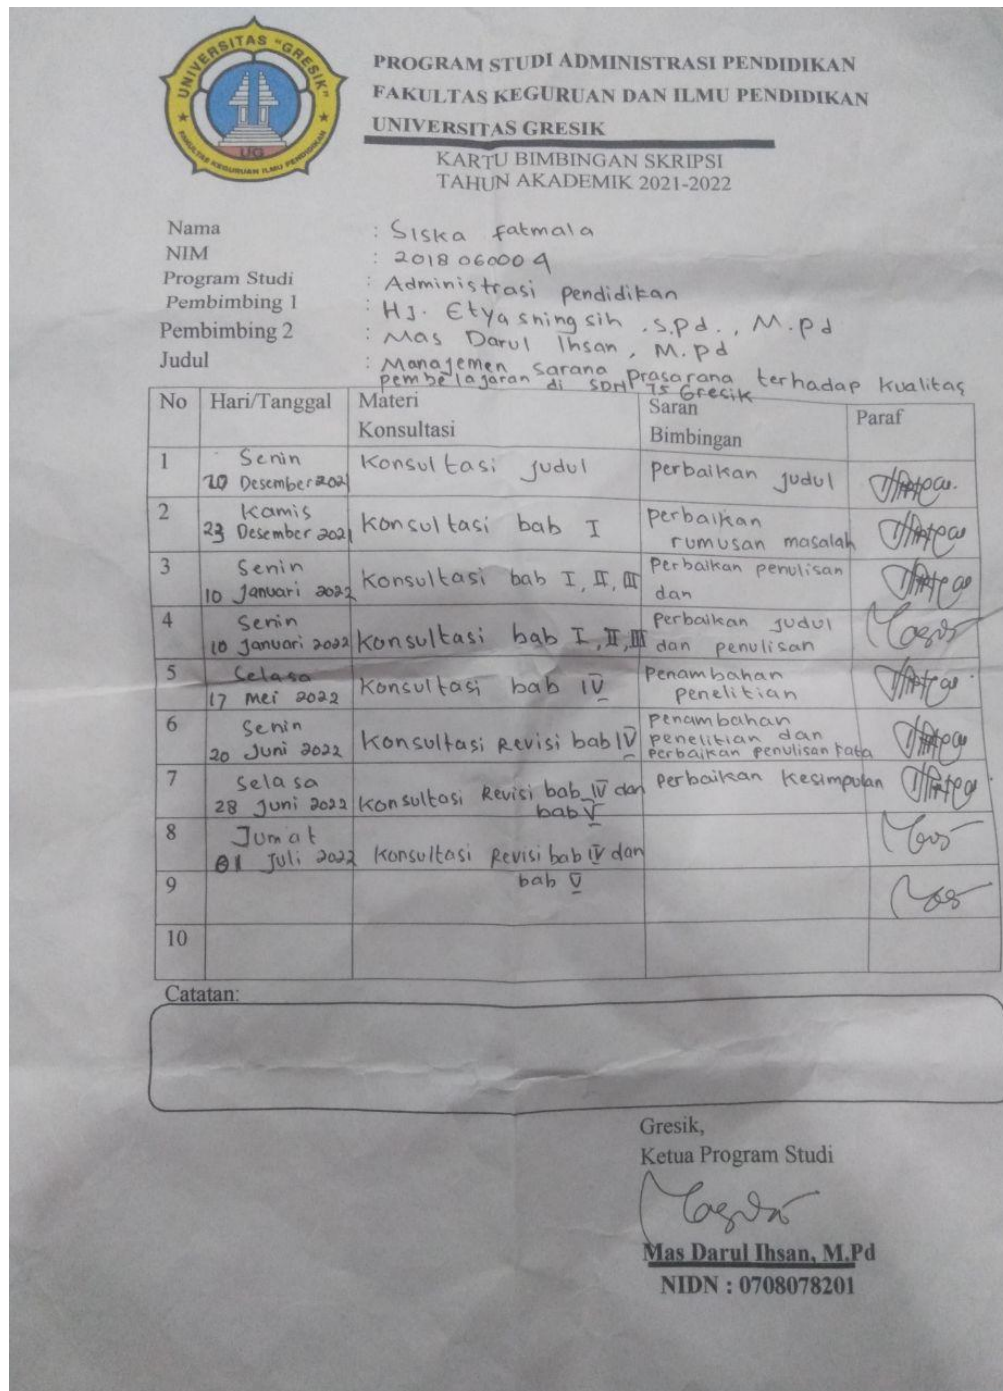 UNIVERSITAS "GRESIK"
UG
FAKULTAS KEGURUAN ILMU PENDIDIKAN
PROGRAM STUDI ADMINISTRASI PENDIDIKAN
FAKULTAS KEGURUAN DAN ILMU PENDIDIKAN
UNIVERSITAS GRESIK
KARTU BIMBINGAN SKRIPSI
TAHUN AKADEMIK 2021-2022
Nama : Siska fatmala
NIM : 2018060009
Program Studi : Administrasi pendidikan
Pembimbing 1 : Hj. Etyasningsih .S.Pd., M.pd
Pembimbing 2 : Mas Darul Ihsan, M.pd
Judul : Manajemen sarana prasarana terhadap kualitas
pembelajaran di SDN 75 Gresik
No Hari/Tanggal Materi Konsultasi Saran Bimbingan Paraf
1 Senin Konsultasi judul perbaikan judul
20 Desember 2021
2 Kamis Konsultasi bab I perbaikan
23 Desember 2021 rumusan masalah
3 Senin Konsultasi bab I, II, III Perbaikan penulisan
10 Januari 2022 dan
4 Senin Konsultasi bab I, II, III perbaikan judul
10 Januari 2022 dan penulisan
5 Selasa Konsultasi bab IV Penambahan
17 mei 2022 penelitian
6 Senin Konsultasi Revisi bab IV penambahan
20 Juni 2022 penelitian dan
perbaikan penulisan kata
7 Selasa Konsultasi Revisi bab IV dan perbaikan kesimpulan
28 Juni 2022 bab V
8 Jumat Konsultasi Revisi bab IV dan
01 Juli 2022 bab V
9
10
Catatan:
Gresik,
Ketua Program Studi
Mas Darul Ihsan, M.Pd
NIDN : 0708078201